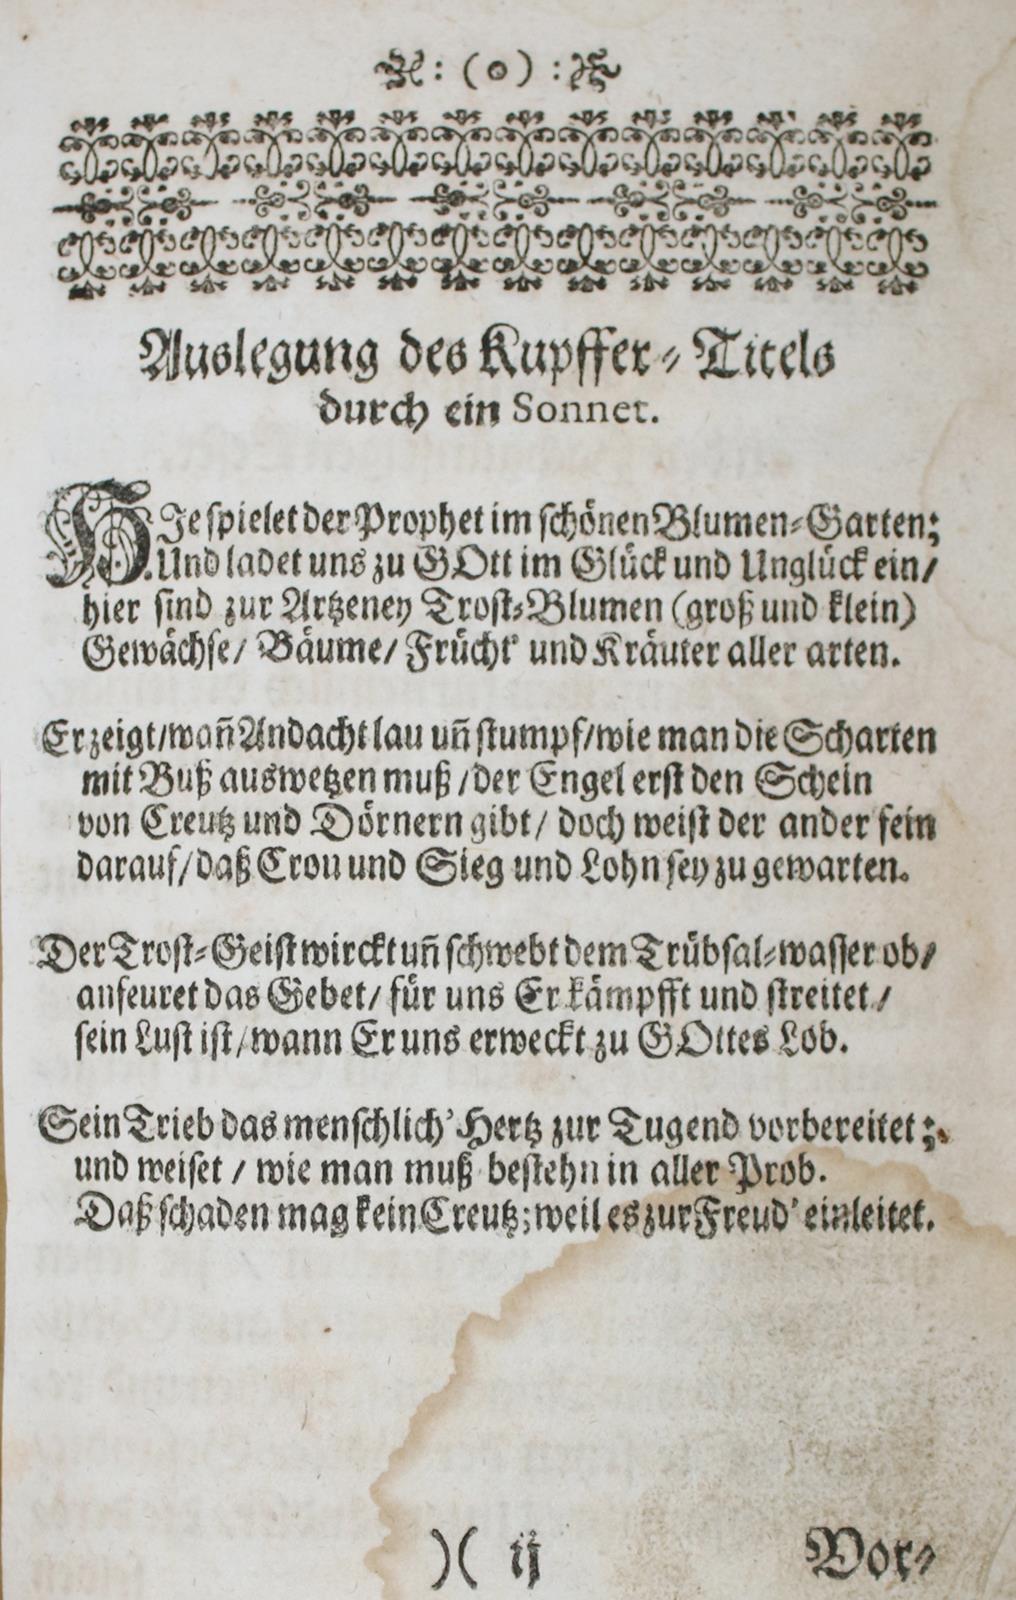 :(o):
Auslegung des Kupffer-Titels
durch ein Sonnet.
HJe spielet der Prophet im schönen Blumen-Garten;
Und ladet uns zu GOtt im Glück und Unglück ein/
hier sind zur Artzeney Trost-Blumen (groß und klein)
Gewächse/ Bäume/ Frücht' und Kräuter aller arten.
Er zeigt/wañ Andacht lau uñ stumpf/wie man die Scharten
mit Buß auswetzen muß/der Engel erst den Schein
von Creutz und Dörnern gibt/ doch weist der ander fein
darauf/daß Cron und Sieg und Lohn sey zu gewarten.
Der Trost-Geist wirckt uñ schwebt dem Trübsal-wasser ob/
anfeuret das Gebet/ für uns Er kämpfft und streitet/
sein Lust ist/wann Er uns erweckt zu GOttes Lob.
Sein Trieb das menschlich' Hertz zur Tugend vorbereitet;
und weiset/ wie man muß bestehn in aller Prob.
Daß schaden mag kein Creutz; weil es zur Freud' einleitet.
)( ij Vor-